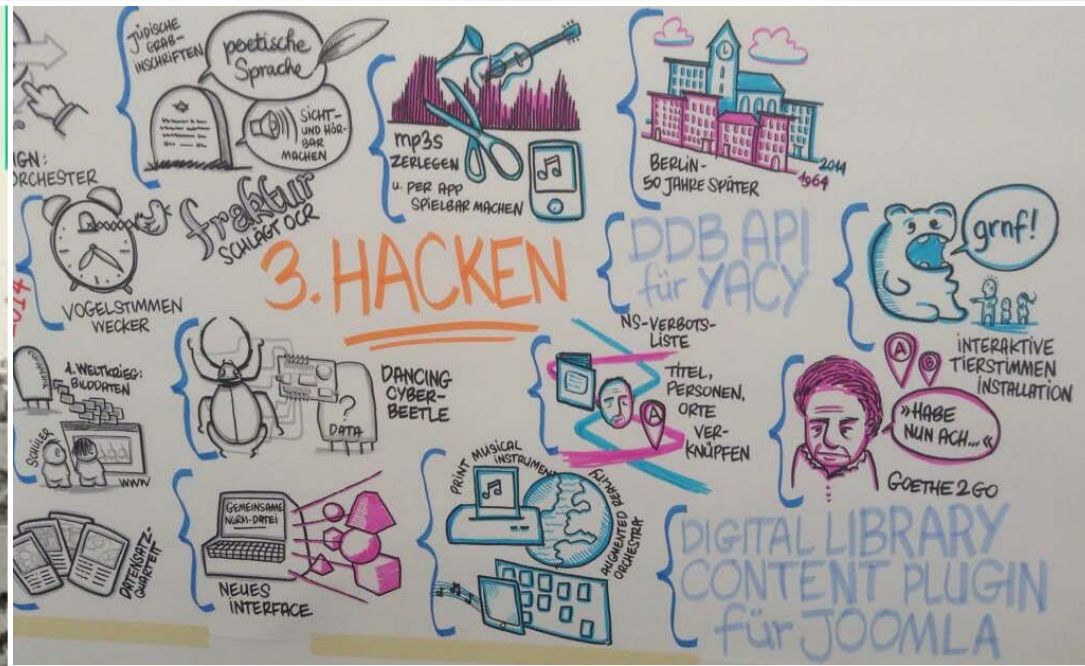 JÜDISCHE
GRAB-
INSCHRIFTEN
poetische
Sprache
SICHT-
UND HÖR-
BAR
MACHEN
mp3s
ZERLEGEN
u. PER APP
SPIELBAR MACHEN
BERLIN-
50 JAHRE SPÄTER
2014
1964
IGN:
ORCHESTER
fraktur
SCHLÄGT OCR
VOGELSTIMMEN
WECKER
3. HACKEN
DDB API
für YACY
grnf!
INTERAKTIVE
TIERSTIMMEN
INSTALLATION
1. WELTKRIEG:
BILDDATEN
SCHÜLER
WWW
DATA
?
DANCING
CYBER-
BEETLE
NS-VERBOTS-
LISTE
TITEL,
PERSONEN,
ORTE
VER-
KNÜPFEN
A
A
B
»HABE
NUN ACH...«
GOETHE2GO
DATENSATZ-
QUARTETT
GEMEINSAME
NORM-DATEI
NEUES
INTERFACE
PRINT MUSICAL
INSTRUMENT
AUGMENTED REALITY
ORCHESTRA
DIGITAL LIBRARY
CONTENT PLUGIN
für JOOMLA